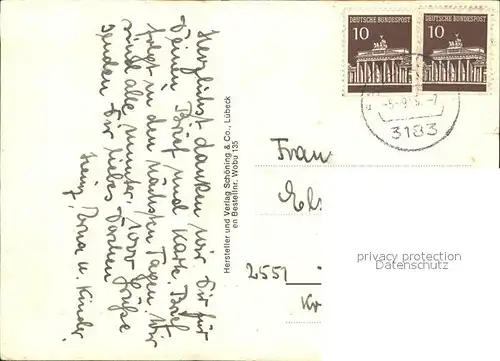 Herzlichst danken wir Dir für
Deinen Brief und Karte. Brief
folgt in den nächsten Tagen. Wir
sind alle munter. 1000 Grüße
senden Dir liebes Dorchen
Heinz, Erna u. Kinder.
Hersteller und Verlag Schöning & Co., Lübeck
en Bestellnr. Wobu 135
DEUTSCHE BUNDESPOST
10
DEUTSCHE BUNDESPOST
10
3183
Frau
2551
privacy protection
Datenschutz